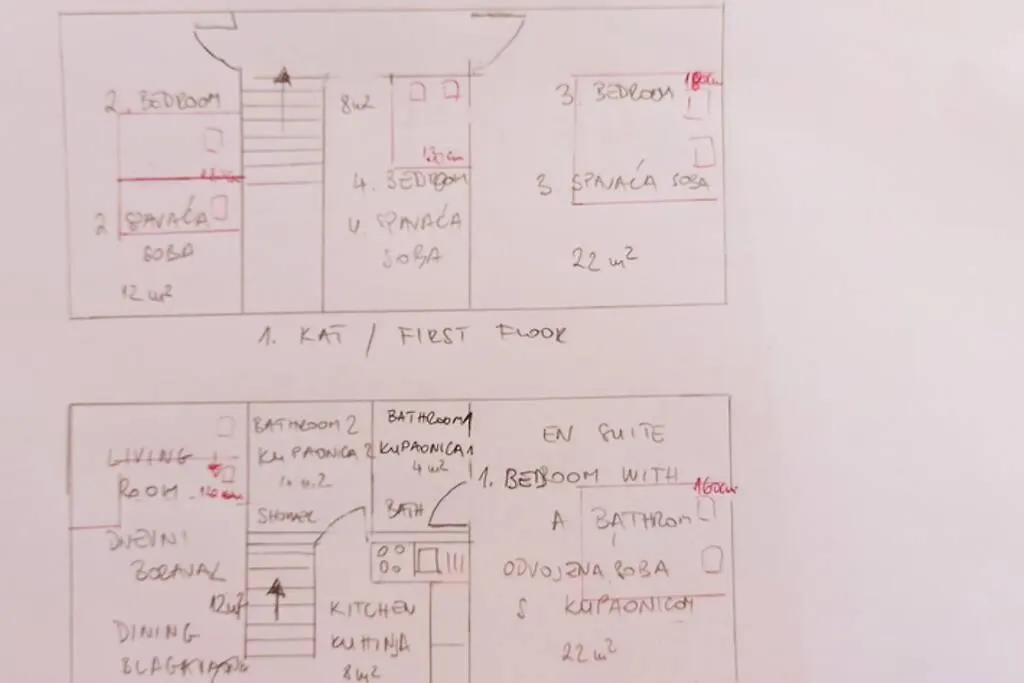 2. BEDROOM
2 SPAVAĆA
SOBA
12 m²
8m²
130cm
4. BEDROOM
4. SPAVAĆA
SOBA
180cm
3. BEDROOM
3 SPAVAĆA SOBA
22 m²
1. KAT / FIRST FLOOR
LIVING
ROOM
DNEVNI
BORAVAK
12m²
DINING
BATHROOM 2
KUPAONICA 2
SHOWER
BATHROOM 1
KUPAONICA 1
4 m²
BATH
KITCHEN
KUHINJA
8m²
EN SUITE
1. BEDROOM WITH
160cm
A BATHROM
ODVOJENA SOBA
S KUPAONICOM
22 m²